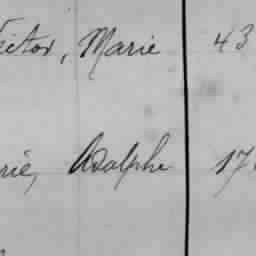 Victor, Marie 43
rie, Adolphe 17